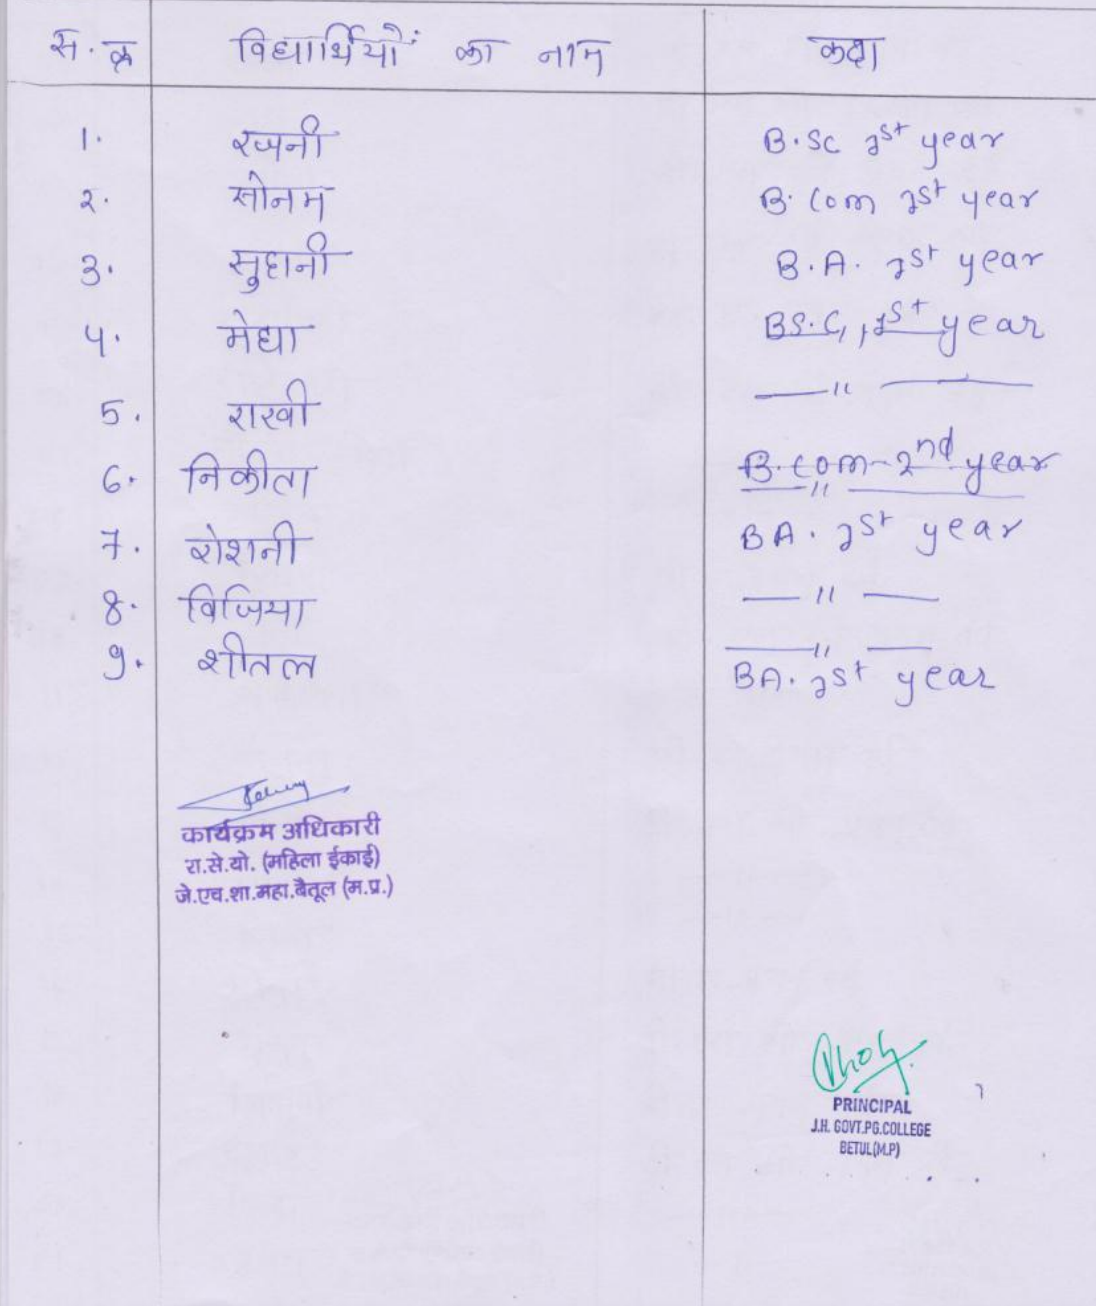 स. क्र विद्यार्थियों का नाम कक्षा
1. रजनी B.Sc 1st year
2. सोनम B.Com 1st year
3. सुहानी B.A. 1st year
4. मेघा BS.C, 1st year
5. राखी —〃—
6. निकीता B.com-2nd year
—〃—
7. रोशनी BA. 1st year
8. विजिया —〃—
9. शीतल —〃—
BA. 1st year
कार्यक्रम अधिकारी
रा.से.यो. (महिला ईकाई)
जे.एच.शा.महा.बैतूल (म.प्र.)
PRINCIPAL
J.H. GOVT.PG.COLLEGE
BETUL(M.P)